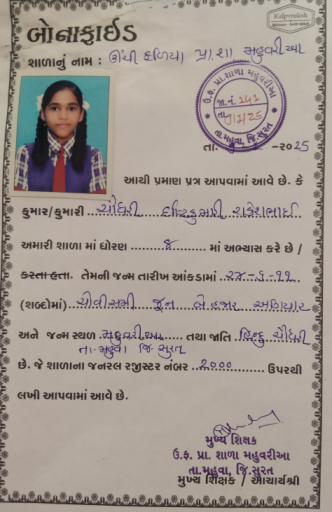 Kalpvruksh
બોનાફાઈડ
શાળાનું નામ : ઊંચી ફળિયા પ્રા. શા મહુવરીઆ
ઉ. ફ. પ્રા. શાળા મહુવરીઆ
જા.નં. 242
તા.
તા. મહુવા, જિ. સુરત
તા. -૨૦25
આથી પ્રમાણ પત્ર આપવામાં આવે છે. કે
કુમાર/કુમારી ચૌધરી રાજેશભાઈ
અમારી શાળા માં ધોરણ ૪ માં અભ્યાસ કરે છે /
કરતા હતા. તેમની જન્મ તારીખ આંકડામાં ૨૪-૬-૧૧
(શબ્દોમાં) ચોવીસમી જૂન બે હજાર અગિયાર
અને જન્મ સ્થળ મહુવરીઆ તથા જાતિ હિન્દુ ચૌધરી
તા. મહુવા જિ. સુરત
છે. જે શાળાના જનરલ રજીસ્ટર નંબર ૨૦૦૦ ઉપરથી
લખી આપવામાં આવે છે.
મુખ્ય શિક્ષક
ઉ.ફ. પ્રા. શાળા મહુવરીઆ
તા.મહુવા, જિ.સુરત
મુખ્ય શિક્ષક / આચાર્યશ્રી